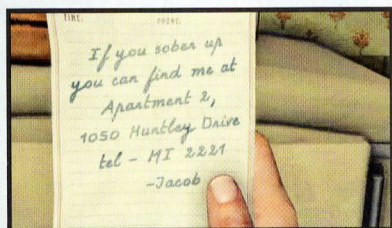 TIME: PHONE:
If you sober up
you can find me at
Apartment 2,
1050 Huntley Drive
tel - MI 2221
-Jacob